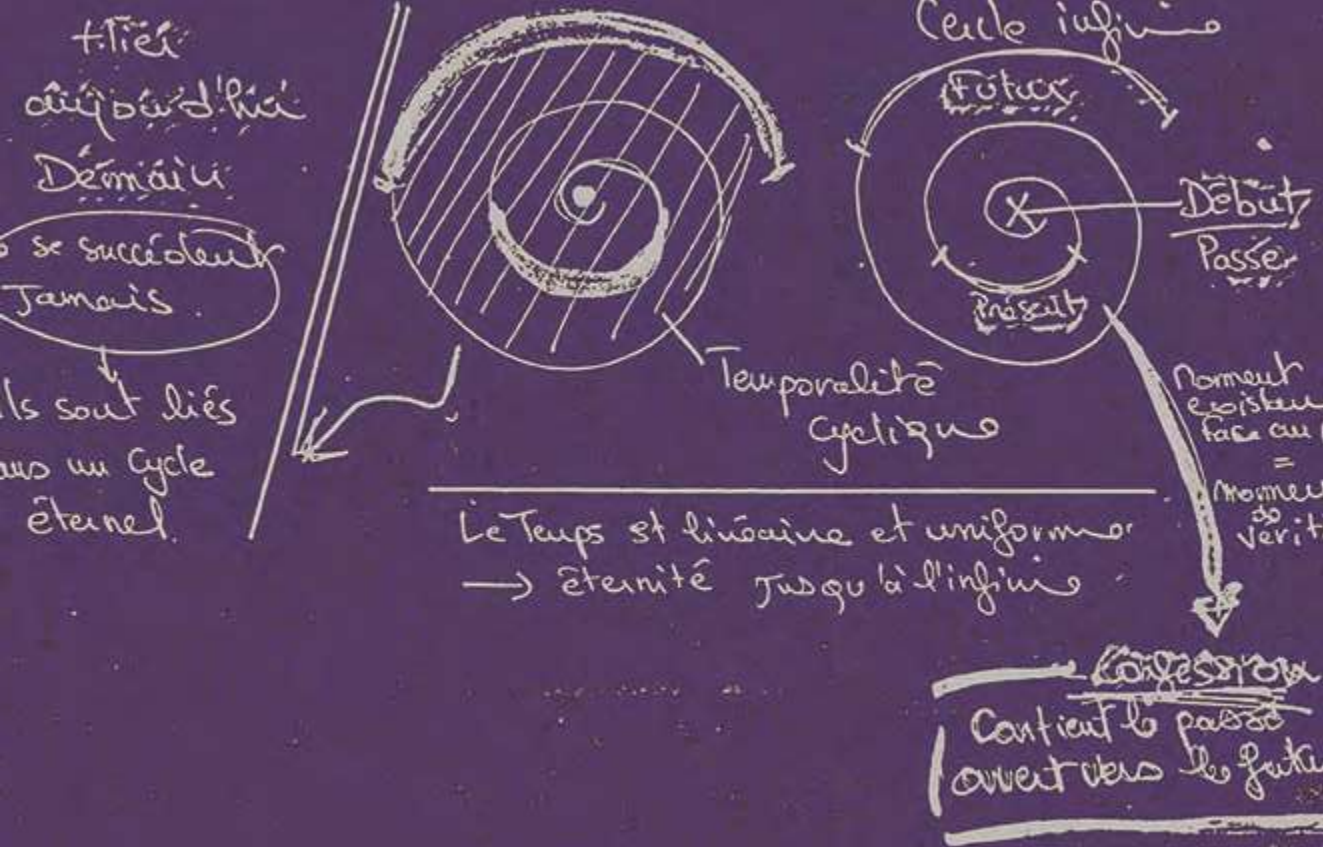 Hier
aujourd'hui
Demain
se succèdent
Jamais.
ils sont liés
dans un Cycle
éternel.
Temporalité
Cyclique
Le Temps est linéaire et uniforme
→ éternité jusqu'à l'infini
Cercle infini
Futur
Début
Passé
Présent
Moment
face au
=
Moment
de
vérit
Confession
Contient le passé
ouvert vers le futur